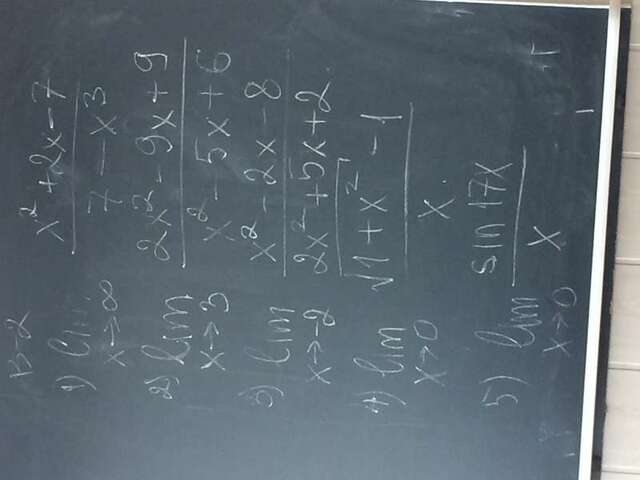 В-2
1) lim x→∞ (x² + 2x - 7) / (7 - x³)
2) lim x→3 (2x² - 9x + 9) / (x² - 5x + 6)
3) lim x→-2 (x² - 2x - 8) / (2x² + 5x + 2)
4) lim x→0 (√(1 + x²) - 1) / x
5) lim x→0 sin 17x / x